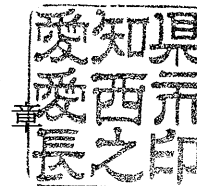 愛知県
愛西市
長之印
章